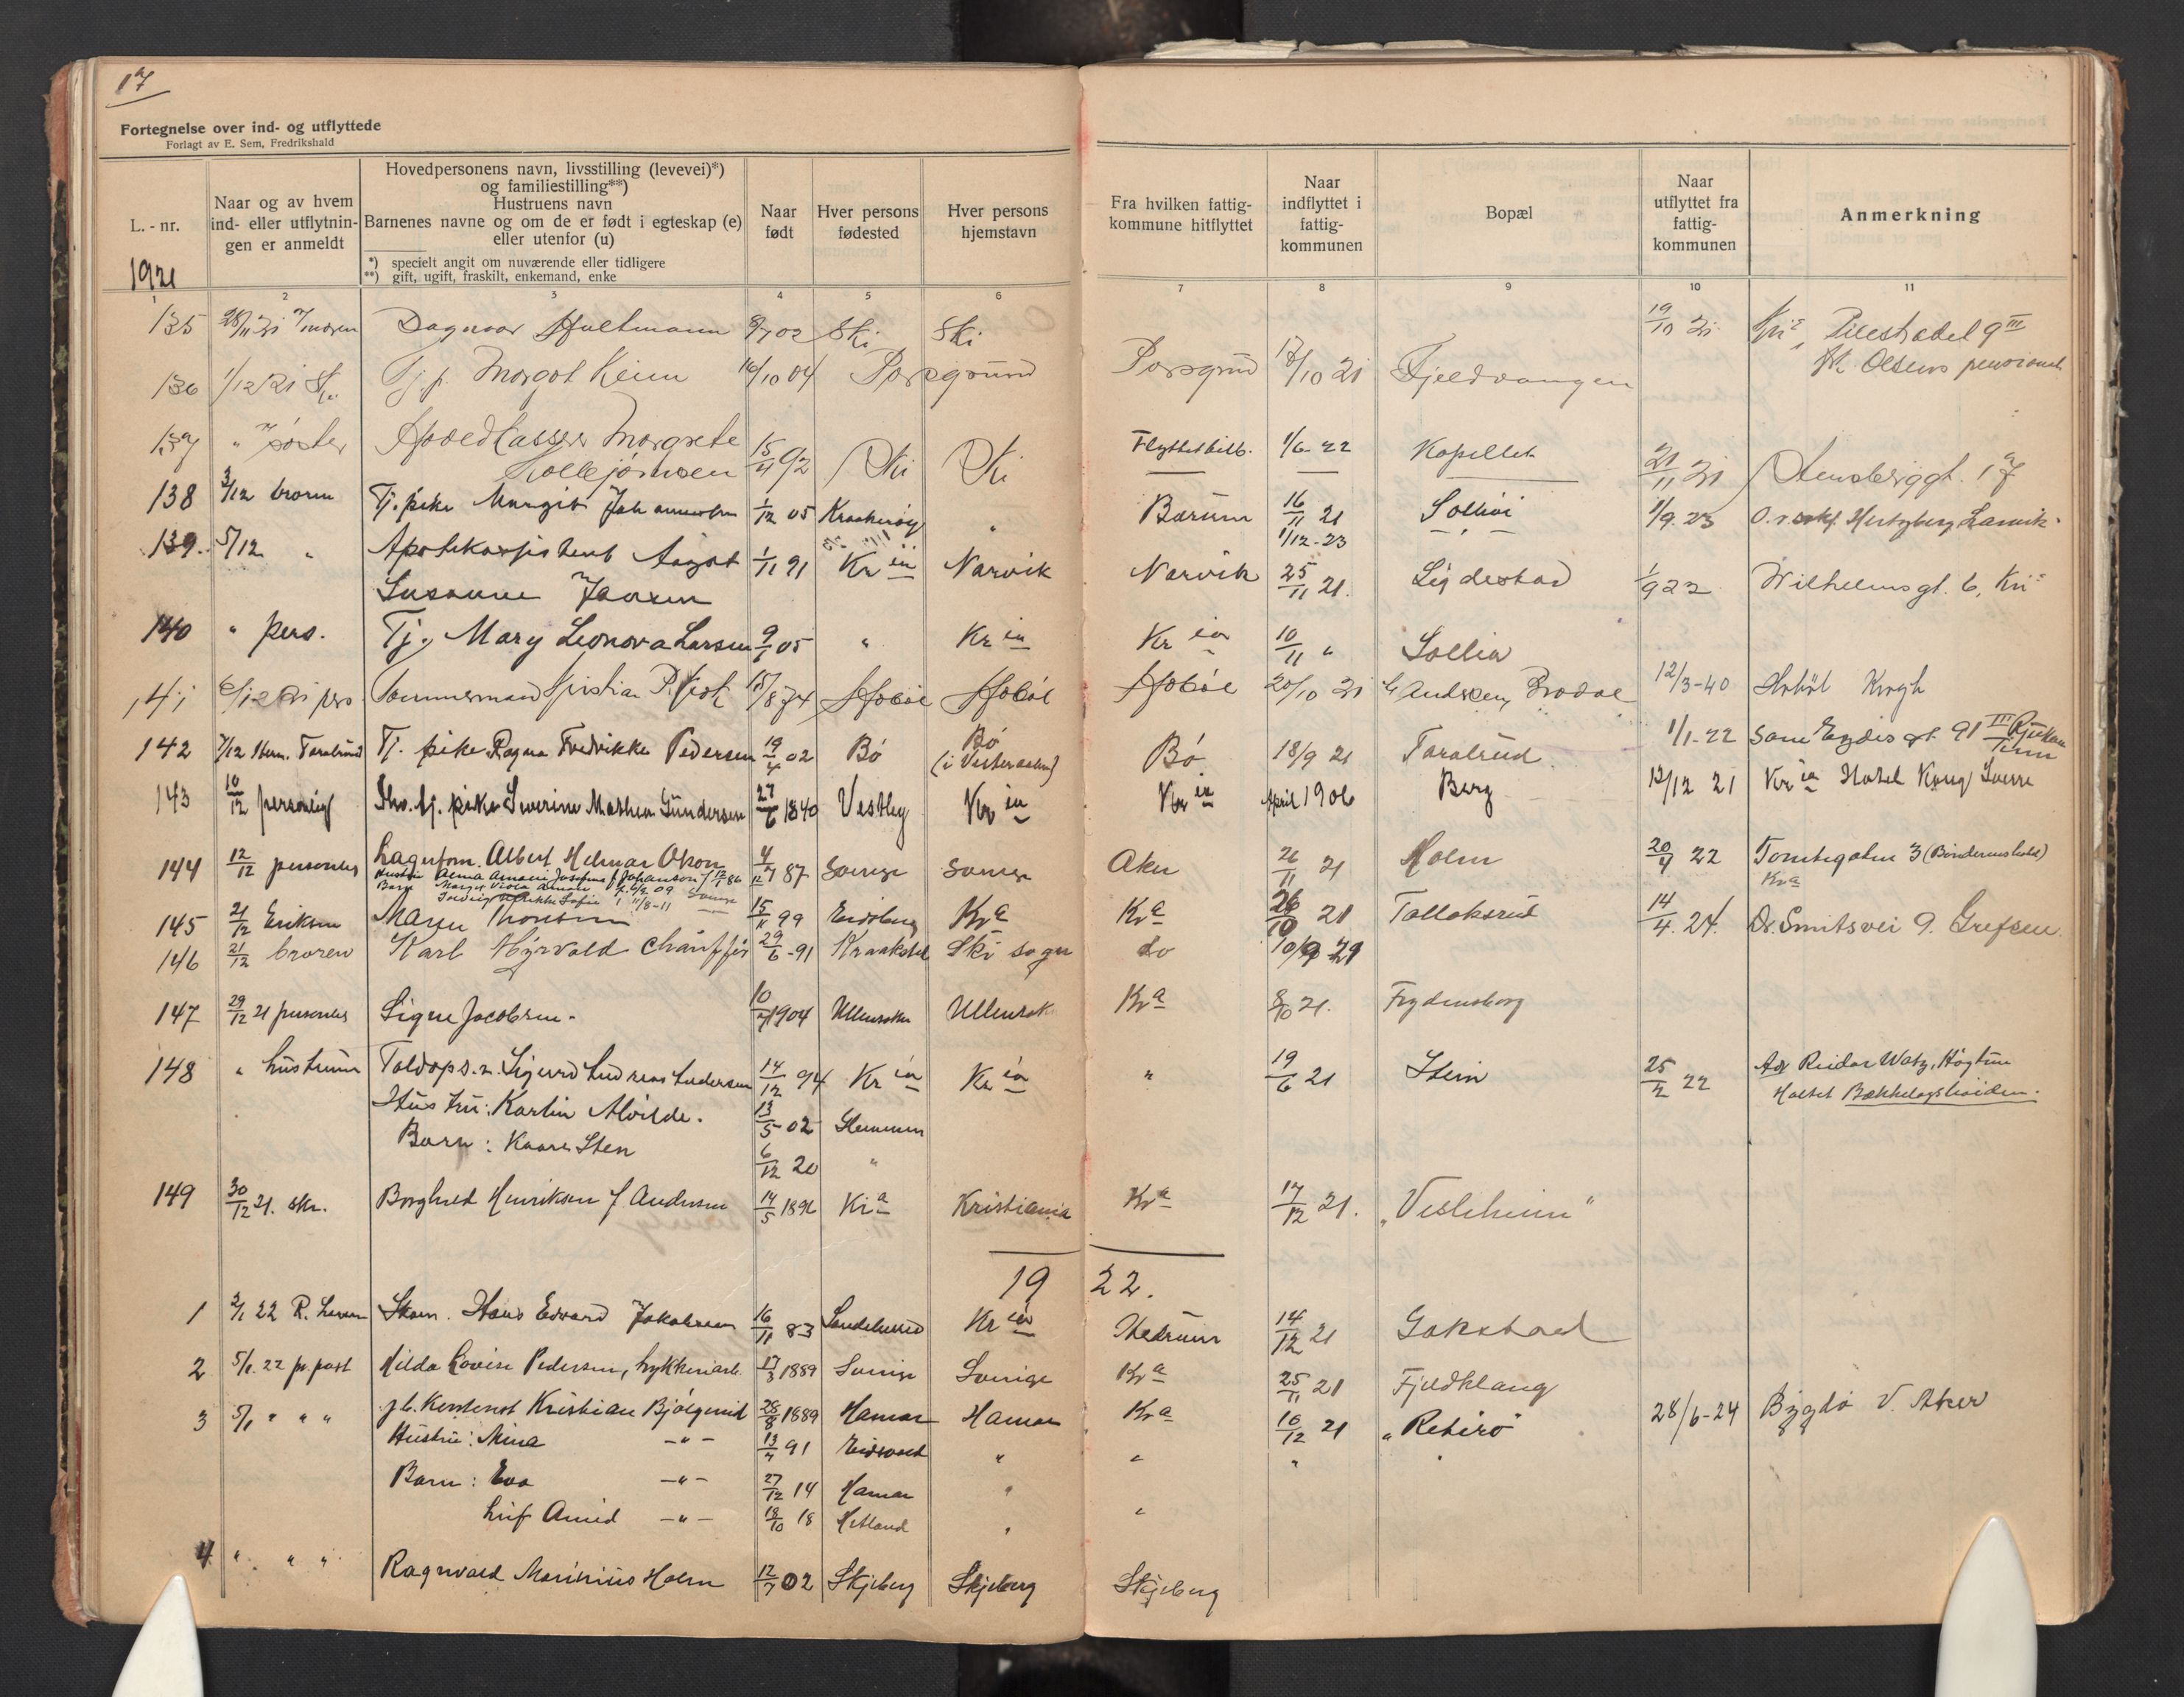 17
Fortegnelse over ind- og utflyttede
Forlagt av E. Sem, Fredrikshald
L.-nr.
Naar og av hvem ind- eller utflytningen er anmeldt
Hovedpersonens navn, livsstilling (levevei)*)
og familiestilling**)
Hustruens navn
Barnenes navne og om de er født i egteskap (e)
eller utenfor (u)
*) specielt angit om nuværende eller tidligere
**) gift, ugift, fraskilt, enkemand, enke
Naar født
Hver persons fødested
Hver persons hjemstavn
Fra hvilken fattigkommune hitflyttet
Naar indflyttet i fattigkommunen
Bopæl
Naar utflyttet fra fattigkommunen
Anmerkning
1921
2 3 4 5 6 7 8 9 10 11
135 28/11 21 Dagmar Hultmann 8/7 02 Ski Ski 19/10 21 Pilestrædet 9 III
Olsens pensionat
136 1/12 21 Tj. p. Margot Keim 16/10 04 Porsgrund Porsgrund 18/10 21 Fjeldvangen
137 " søster Margrete 15/4 92 Ski Ski Flyttet tilb. 1/6-22 Kapellet 21/11 21 Stensberggt. 17
138 3/12 broren Tj. pike Margit Johannessen 1/12 05 Kraakerøy " Bærum 16/11 21 Sollien 1/9.23 Hertzberg Larvik
1/12-23
139. 5/12 " Aagot 1/11 91 Kr ia Narvik Narvik 25/11 21. Ligdestad 1/9 22 Wilhelmsgt. 6, Kri a
Susanne Jansen
140 " pers. Tj. Mary Leonora Larsen 9/1 05 " Kr ia Kr ia 10/11 " Sollia
141 6/12 21 pers Tømmermand Kristian P. 15/8 74 Hobøl Hobøl Hobøl 20/10 21 Andersen, 12/3-40 Hobøl Krogh
142 7/12 Herm. Taralrud Tj. pike Ragna Fredrikke Pedersen 19/4 02 Bø Bø (i Vesteraalen) Bø 18/9 21 Taralrud 1/1-22 Sam Eydes gt. 91 III Rjukan
143 10/12 personlig Fhv. tj. pike Severine Mathea Gundersen 27/6 1840 Vestby Kr ia Kr ia April 1906 Berg 12/12 21 Kr ia Hotel Kong Sverre
144 12/12 personlig Lagerform. Albert Helmar Olson 4/11 87 Sverige Sverige Aker 26/11 21 Holm 20/4 22 Tomtegaten 3
Hustru Anna Amani Josefine f. Johanson f. 12/1 86 Kr a
Barn Margit Viola f. 09
Solveig Sofie f. 11/8-11 Sverige
145 21/12 Eriksen Thorsen 15/11 99 Eidsberg Kr a Kr a 26/10 21 Tallaksrud 14/4. 24. Dr. Smitsvei 9. Grefsen
146 21/12 broren Karl chauffør 29/6-91 Kraakstad Ski sogn do 10/9 21
147 29/12 21 personlig Signe Jacobsen. 10/4 1904 Ullensaker Ullensak. Kr a 8/10 21. Frydensborg
148 " hustruen Toldops.m. Sigurd Andreas Andersen 14/12 94 Kr ia Kr ia " 19/6 21 Stein 25/2 22 Adr Reidar Watz, Høgtun
Hustru: Karlin Alvilde. 13/5 02 Glemmen Holtet Bækkelagshøiden.
Barn: Kaare Sten 6/12 20 "
149 30/12 21. skr. Borghild Henriksen f Andersen 14/5 1896 Kr a Kristiania Kr a 17/12 21. "Vesleheim"
1922.
1 2/1 22 R. Larsen Skom. Hans Edvard Jakobsen 16/11 83 Sandeherred Kr ia Hedrum 14/12 21 Gokstad
2 5/1. 22 pr. post Hilda Lovise Pedersen, trykkeriarb. 17/3 1889 Sverige Sverige Kr a 25/11 21 Fjeldklang
3 5/1 " " " Kristian Bjølgerud 28/8 1889 Hamar Hamar Kr a 16/12 21 "Retiro" 28/6-24 Bygdø V. Aker
Hustru: Mina -"- 13/4 91 Eidsvold " " " "
Barn: Eva -"- 27/12 14 Hamar "
Leif Arvid -"- 18/10 18 Hetland " "
4 " " " Ragnvald Marinius Holm 12/7 02 Skjeberg Skjeberg Skjeberg